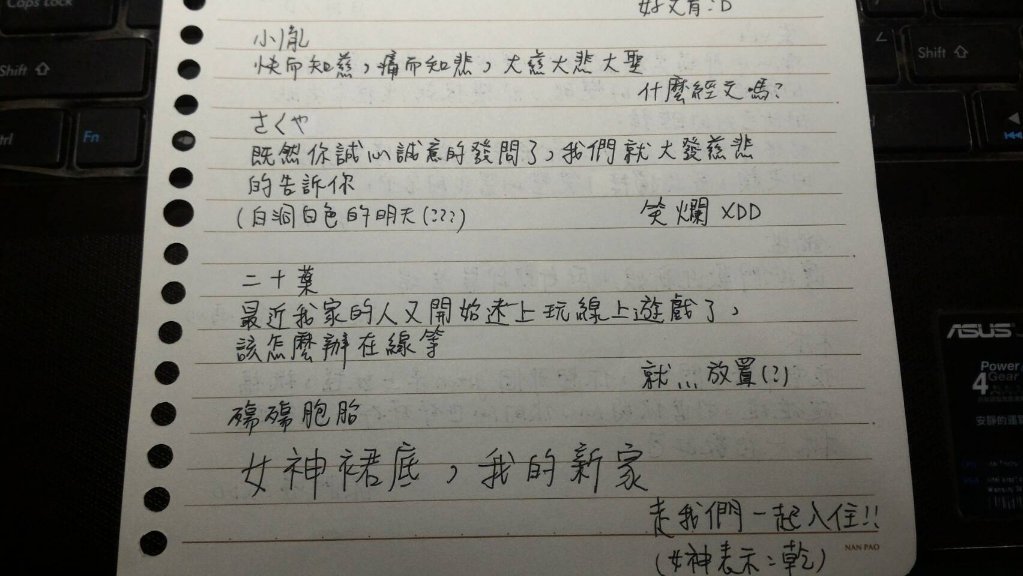 好文有:D
小胤
快而知慈，痛而知悲，大慈大悲大聖
什麼經文嗎？
さくや
既然你誠心誠意的發問了，我們就大發慈悲
的告訴你
(白洞白色的明天(???)
笑爛 XDD
二十葉
最近我家的人又開始迷上玩線上遊戲了，
該怎麼辦在線等
就...放置(?)
殤殤胞胎
女神裙底，我的新家
走我們一起入住!!
(女神表示：乾)
NAN PAO
Caps Lock
Shift
Fn
Shift
ASUS
Power
4 Gear